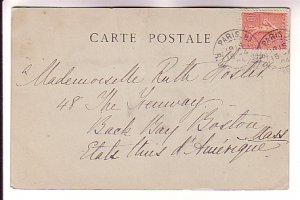 CARTE POSTALE
PARIS
a Mademoiselle Ruth
48 The Fenway
Back Bay Boston
Mass
Etats Unis d'Amérique.